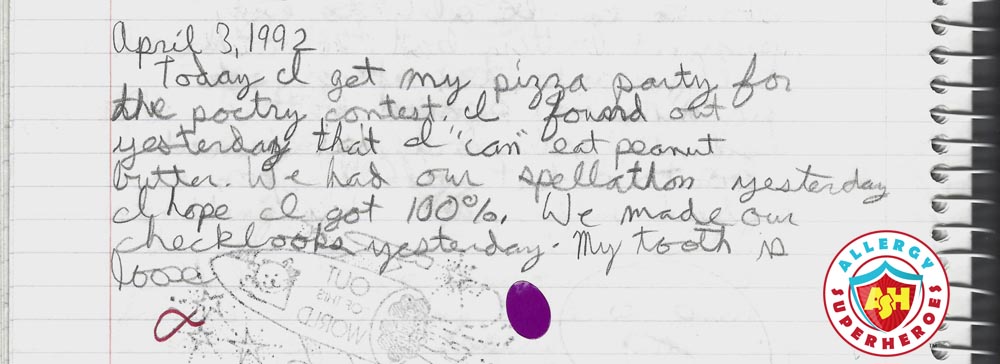 April 3, 1992
Today I get my pizza party for
the poetry contest. I found out
yesterday that I "can" eat peanut
butter. We had our spellathon yesterday
I hope I got 100%. We made our
checkbooks yesterday. My tooth is
loose
OUT
OF THIS
WORLD
ALLERGY
ASH
SUPERHEROES